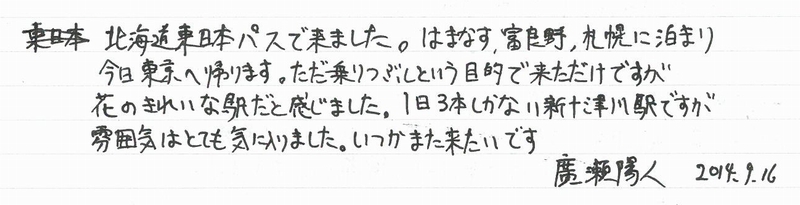 東日本 北海道東日本パスで来ました。はまなす,富良野,札幌に泊まり
今日東京へ帰ります。ただ乗りつぶしという目的で来ただけですが
花のきれいな駅だと感じました。1日3本しかない新十津川駅ですが
雰囲気はとても気に入りました。いつかまた来たいです
廣瀬陽人 2014.9.16